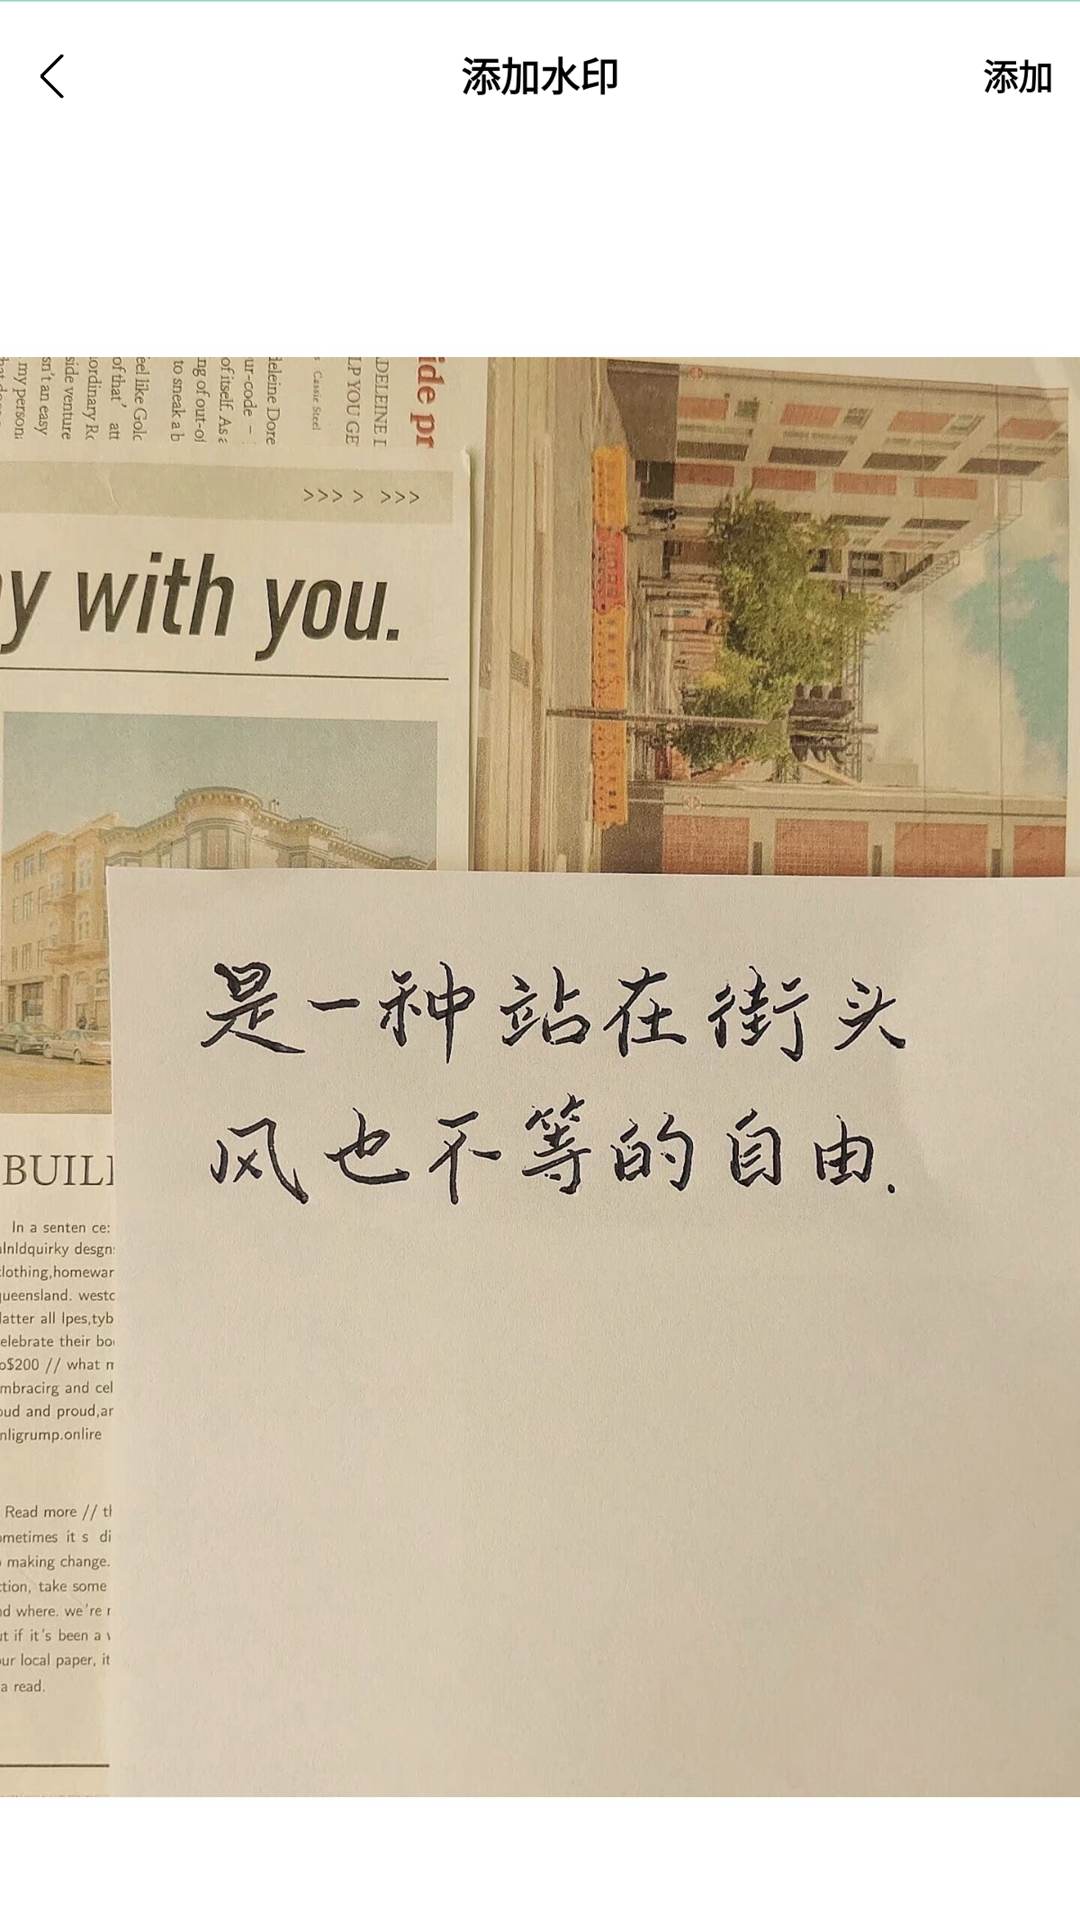 添加水印
添加
ide pr
DELEINE D
LP YOU GE
Cassie Steel
deleine Dore
ur-code –
ng of out-of
to sneak a b
eel like Golc
of that' att
ordinary Ro
side venture
sn't an easy
my person
>>> > >>>
y with you.
是一种站在街头
风也不等的自由.
BUIL
In a senten ce:
lnldquirky desgn
lothing,homewar
ueensland. westc
latter all lpes,tyb
elebrate their bo
o$200 // what m
mbracirg and cel
oud and proud,ar
nligrump.onlire
Read more // th
ometimes it s di
making change.
tion, take some
d where. we're
t if it's been a
ur local paper, it
a read.